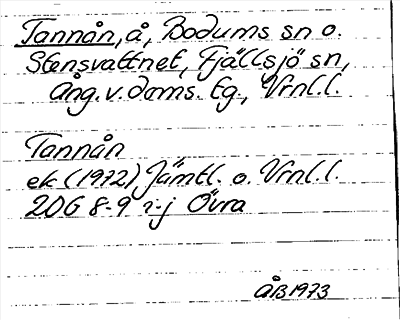 Tannån, å, Bodums sn o.
Stensvattnet, Fjällsjö sn,
Ång. v. doms. tg., Vrnl.l.
Tannån
ek (1972), Jämtl. o. Vrnl.l.
20G 8-9 i-j Övra
ÅB 1973